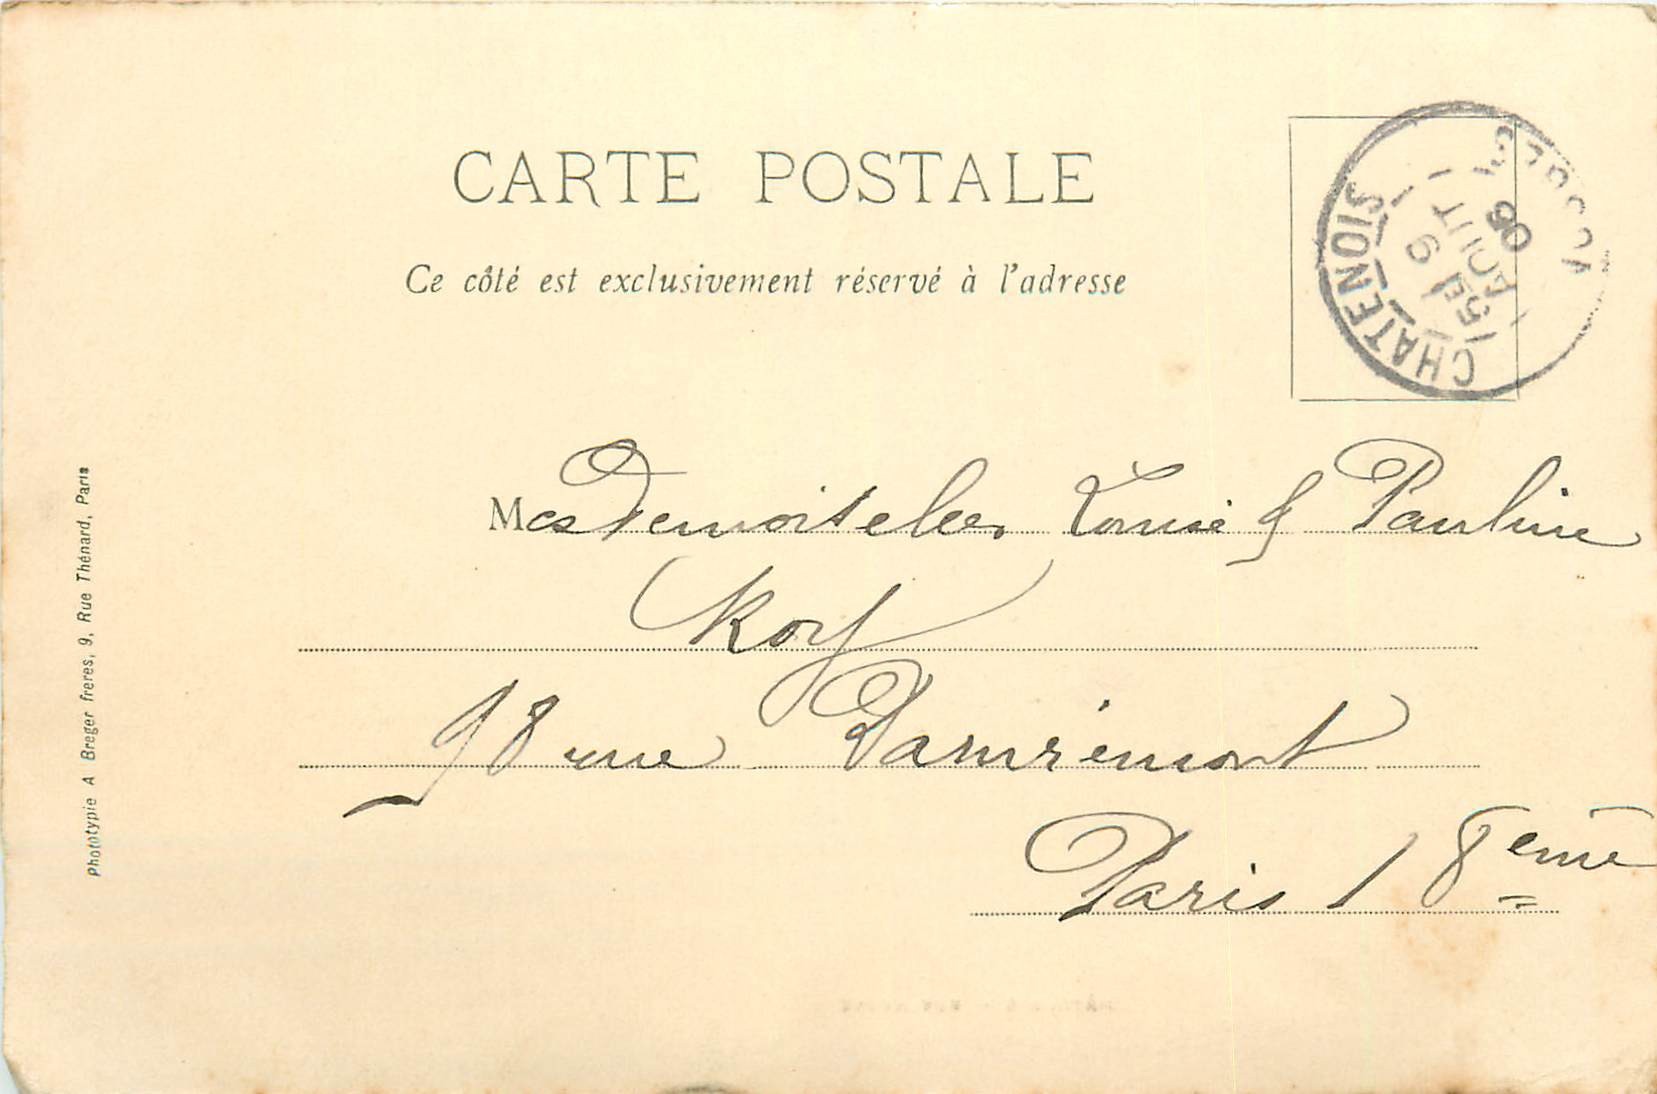 CARTE POSTALE
Ce côté est exclusivement réservé à l'adresse
CHATENOIS
VOSGES
9
AOUT
05
Mesdemoiselles Louise & Pauline
Roy
98 rue Damrémont
Paris 18ème
Phototypie A Breger freres, 9, Rue Thénard, Paris